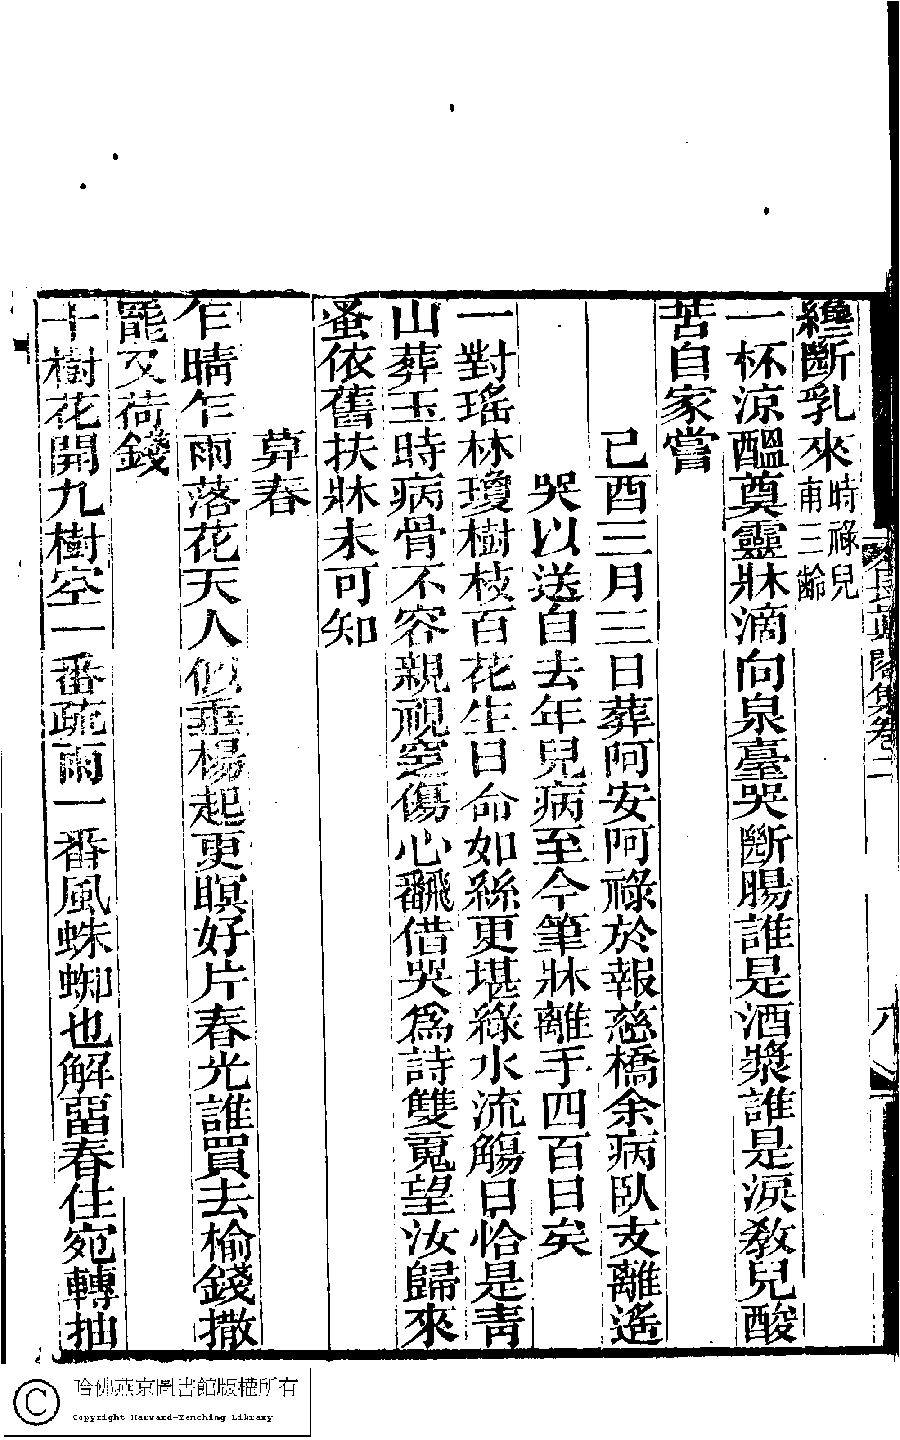 纔斷乳來時祿兒甫三齡
一杯涼醞奠靈牀滴向泉臺哭斷腸誰是酒漿誰是淚敎兒酸
苦自家嘗
己酉三月三日葬阿安阿祿於報慈橋余病臥支離遙
哭以送自去年兒病至今筆牀離手四百日矣
一對瑤林瓊樹枝百花生日命如絲更堪綠水流觴日恰是靑
山葬玉時病骨不容親視窆傷心翻借哭爲詩雙䰟望汝歸來
蚤依舊扶牀未可知
算春
乍晴乍雨落花天人似垂楊起更瞑好片春光誰買去榆錢撒
罷又荷錢
十樹花開九樹空一番疏雨一番風蛛蜘也解畱春住宛轉抽
長眞閣集卷二
八
哈佛燕京圖書館版權所有
Copyright Harvard-Yenching Library